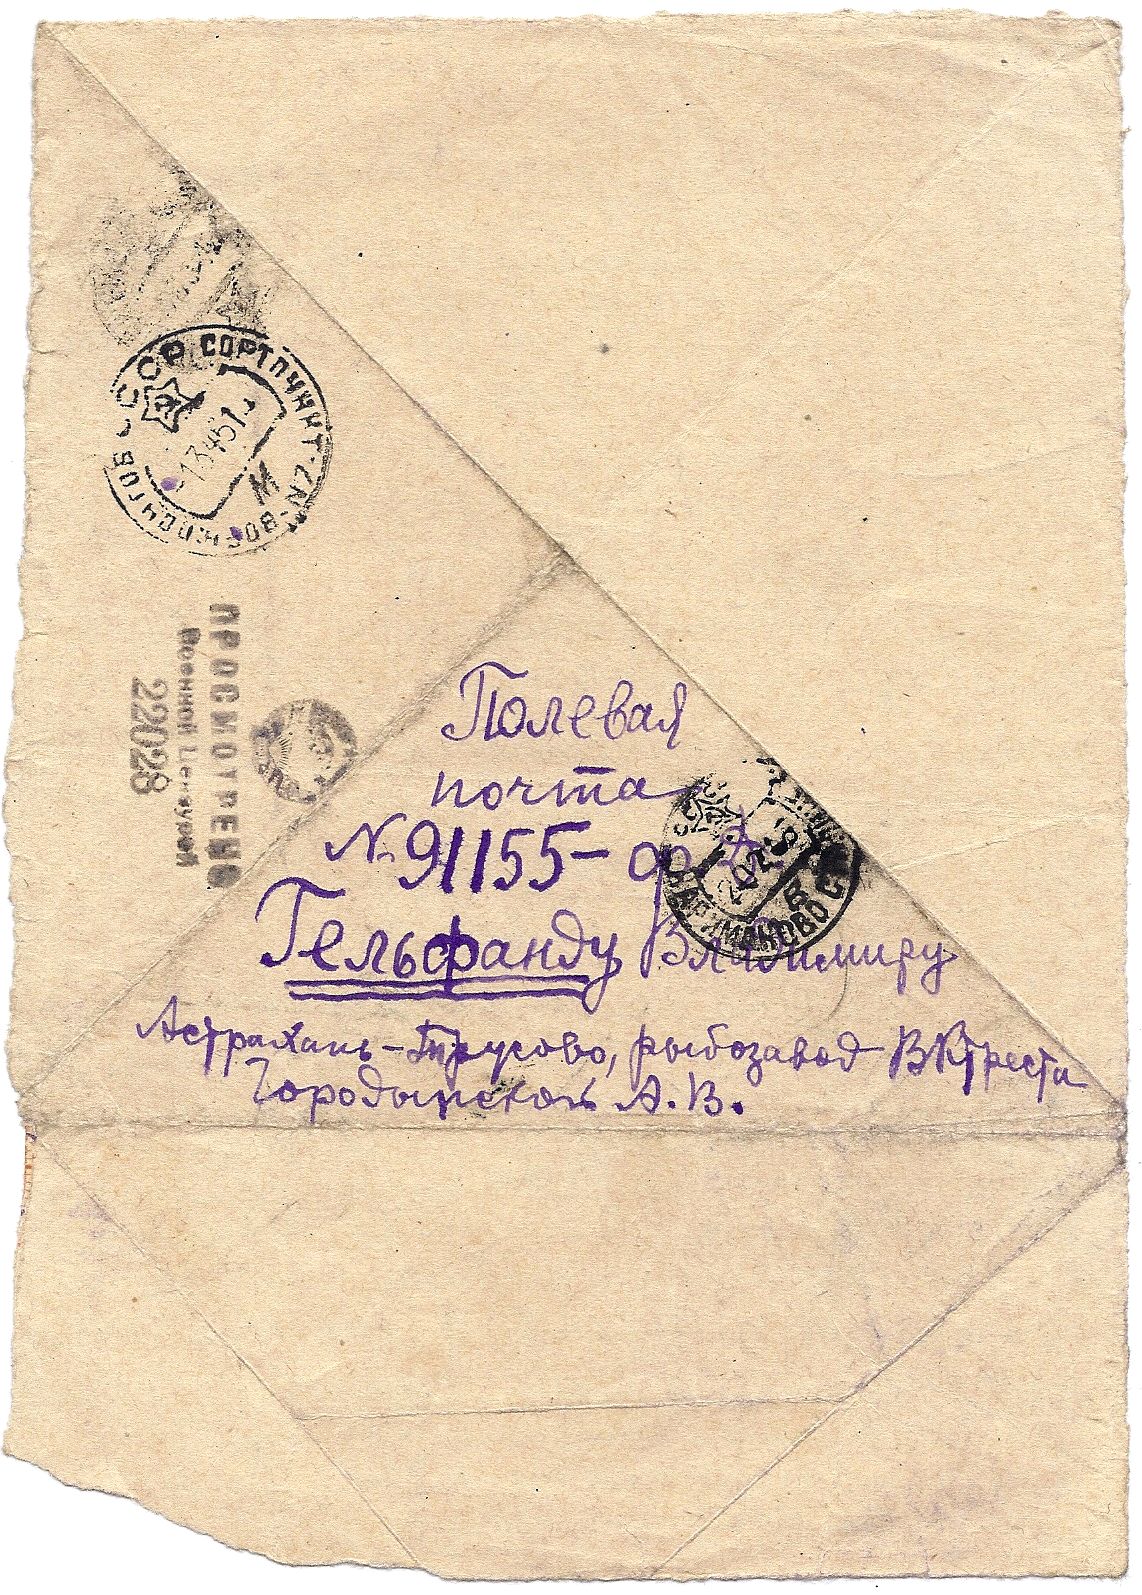 СССР СОРТПУНКТ
13 4 45
М
ПРОСМОТРЕНО
Военной Цензурой
22028
Полевая
почта
№ 91155-ф
Гельфанду Владимиру
Астрахань-Трусово, рыбозавод ВКтреста
Городынской А.В.